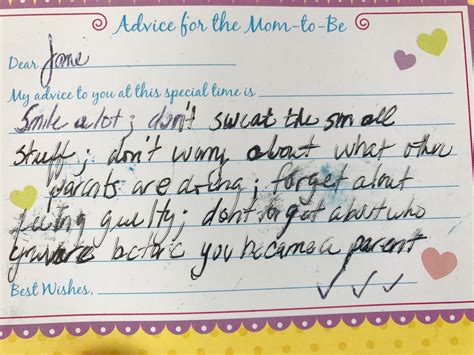 Advice for the Mom-to-Be
Dear Jane
My advice to you at this special time is
Smile a lot; don't sweat the small
stuff; don't worry about what other
parents are doing; forget about
feeling guilty; don't forget about who
you were before you became a parent
Best Wishes,